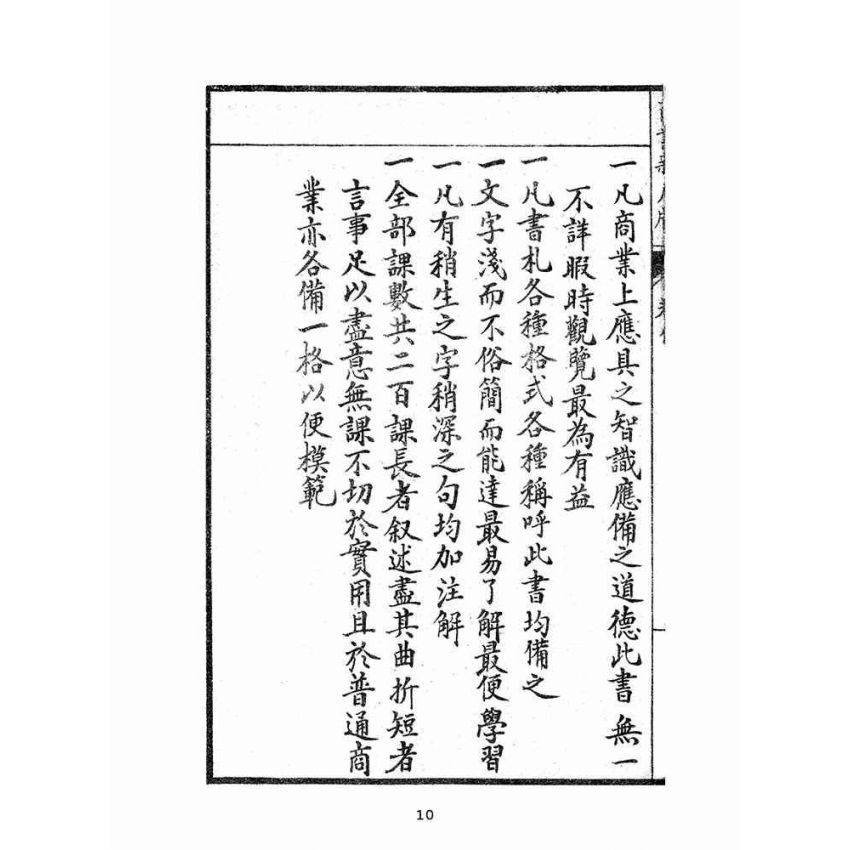 一凡商業上應具之智識應備之道德此書無一
不詳暇時觀覽最為有益
一凡書札各種格式各種稱呼此書均備之
一文字淺而不俗簡而能達最易了解最便學習
一凡有稍生之字稍深之句均加注解
一全部課數共二百課長者叙述盡其曲折短者
言事足以盡意無課不切於實用且於普通商
業亦各備一格以便模範
10